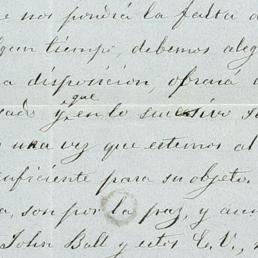 e nos pondrá la falta d
gun tiempo, debemos aleg
a disposicion, obrará
y que en lo sucesivo
una vez que estemos al
suficiente para su objeto.
a, son por la paz, y aun
John Bull y estos E. U.,